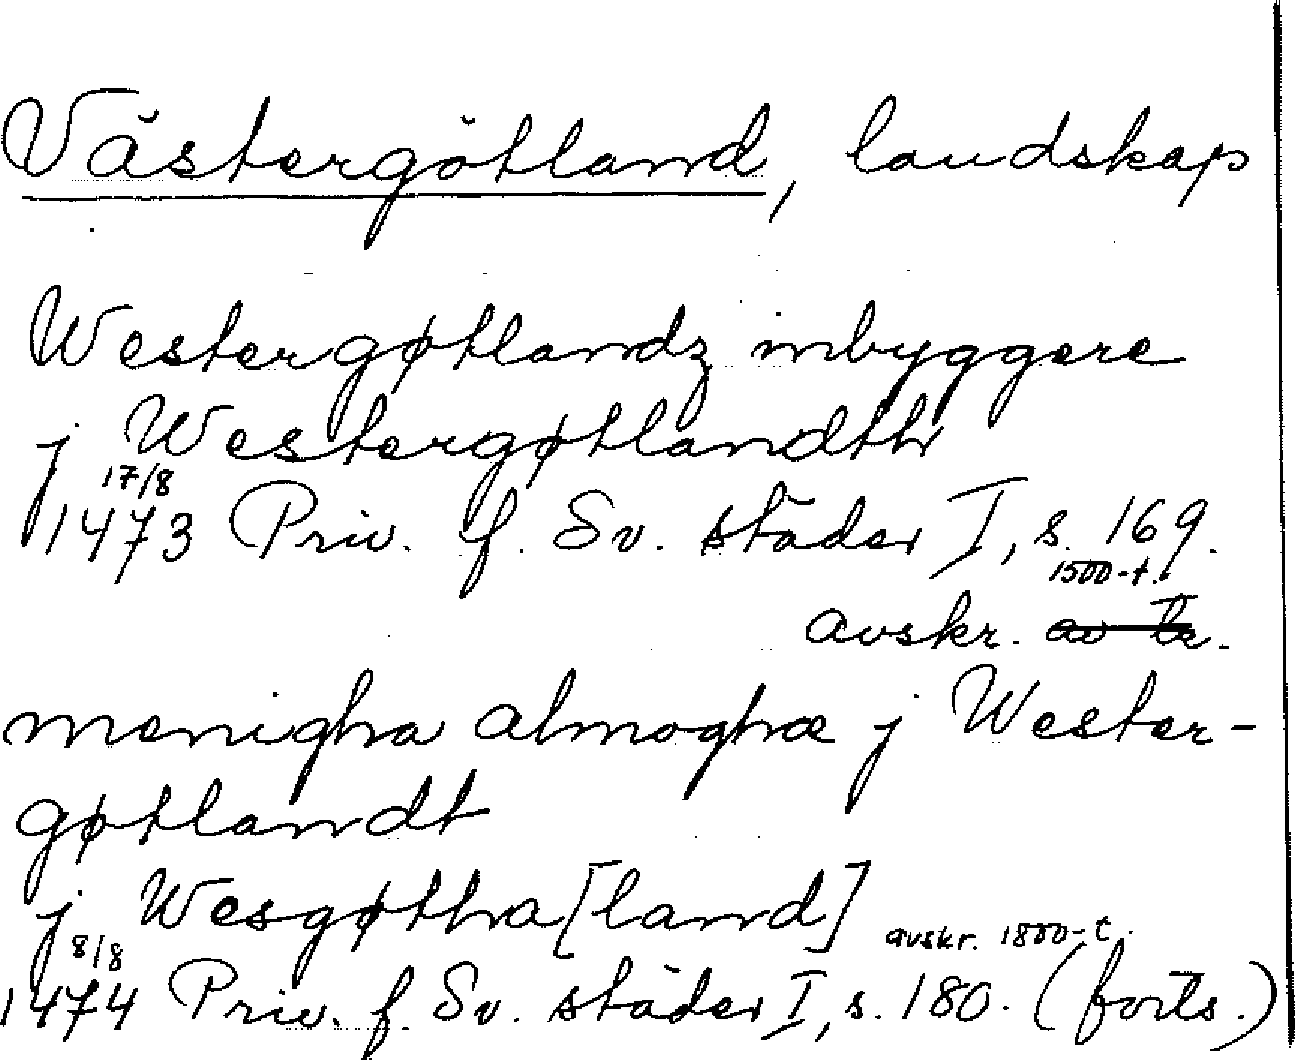 Västergötland, landskap
Westergøtlandz inbyggere
j Westergøtlandth
17/8
1473 Priv. f. Sv. städer I, s. 169.
1500-t.
avskr. av tr.
menigha almoghæ j Wester-
gøtlandt
j Wesgøtha[land]
8/8 avskr. 1800-t.
1474 Priv. f. Sv. städer I, s. 180. (forts.)